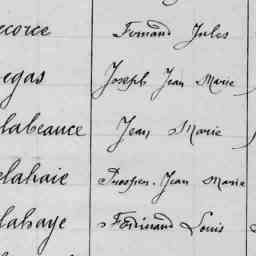 ecorce Fernand Jules
egas Joseph Jean Marie
labeauce Jean Marie
elahaie Prosper Jean Marie
lahaye Ferdinand Louis